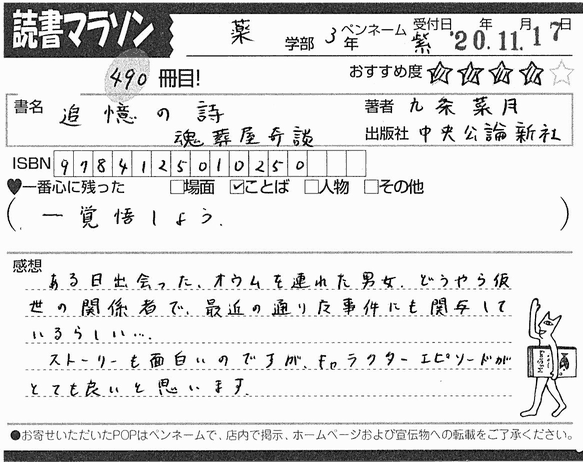 読書マラソン
薬 学部 3年 ペンネーム 紫 受付日 '20年.11月.17日
490 冊目! おすすめ度 ★★★★☆
書名 追憶の詩 著者 九条菜月
魂葬屋奇談 出版社 中央公論新社
ISBN 9784125010250
♥一番心に残った □場面 ☑ことば □人物 □その他
( 一覚悟しよう. )
感想
ある日出会った、オウムを連れた男女. どうやら仮
世の関係者で、最近の通り左事件にも関与して
いるらしい….
ストーリーも面白いのですが、キャラクターエピソードが
とても良いと思います.
Mystery
●お寄せいただいたPOPはペンネームで、店内で掲示、ホームページおよび宣伝物への転載をご了承ください。